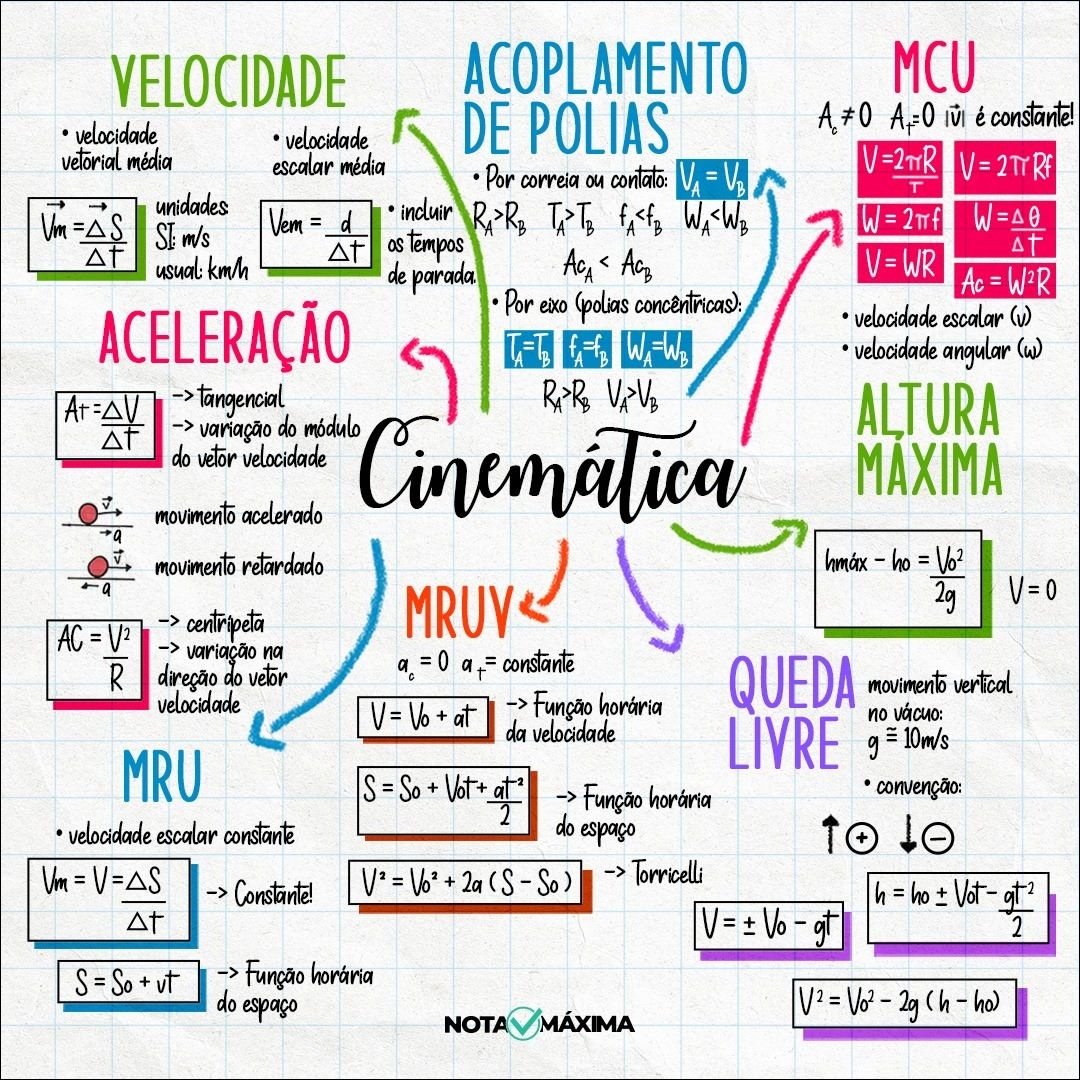 VELOCIDADE
• velocidade
vetorial média
Vm = ΔS
Δt
unidades
SI: m/s
usual: km/h
• velocidade
escalar média
Vem = d
Δt
• incluir
os tempos
de parada.
ACOPLAMENTO
DE POLIAS
• Por correia ou contato: V_A = V_B
R_A>R_B T_A>T_B f_A<f_B W_A<W_B
Ac_A < Ac_B
• Por eixo (polias concêntricas):
T_A=T_B f_A=f_B W_A=W_B
R_A>R_B V_A>V_B
MCU
A_c ≠ 0 A_t=0 |v⃗| é constante!
V=2πR
T
V = 2πRf
W = 2πf
W = Δθ
Δt
V = WR
Ac = W²R
• velocidade escalar (v)
• velocidade angular (w)
ACELERAÇÃO
At = ΔV
Δt
-> tangencial
-> variação do módulo
do vetor velocidade
v⃗
a
movimento acelerado
v⃗
a
movimento retardado
AC = V²
R
-> centrípeta
-> variação na
direção do vetor
velocidade
Cinemática
ALTURA
MÁXIMA
hmáx - ho = Vo²
2g
V = 0
MRUV
a_c = 0 a_t = constante
V = Vo + at
-> Função horária
da velocidade
S = So + Vot + at²
2
-> Função horária
do espaço
V² = Vo² + 2a (S - So)
-> Torricelli
QUEDA
LIVRE
movimento vertical
no vácuo:
g ≅ 10m/s
• convenção:
↑ + ↓ −
h = ho ± Vot - gt²
2
V = ± Vo - gt
V² = Vo² - 2g (h - ho)
MRU
• velocidade escalar constante
Vm = V = ΔS
Δt
-> Constante!
S = So + vt
-> Função horária
do espaço
NOTA MÁXIMA